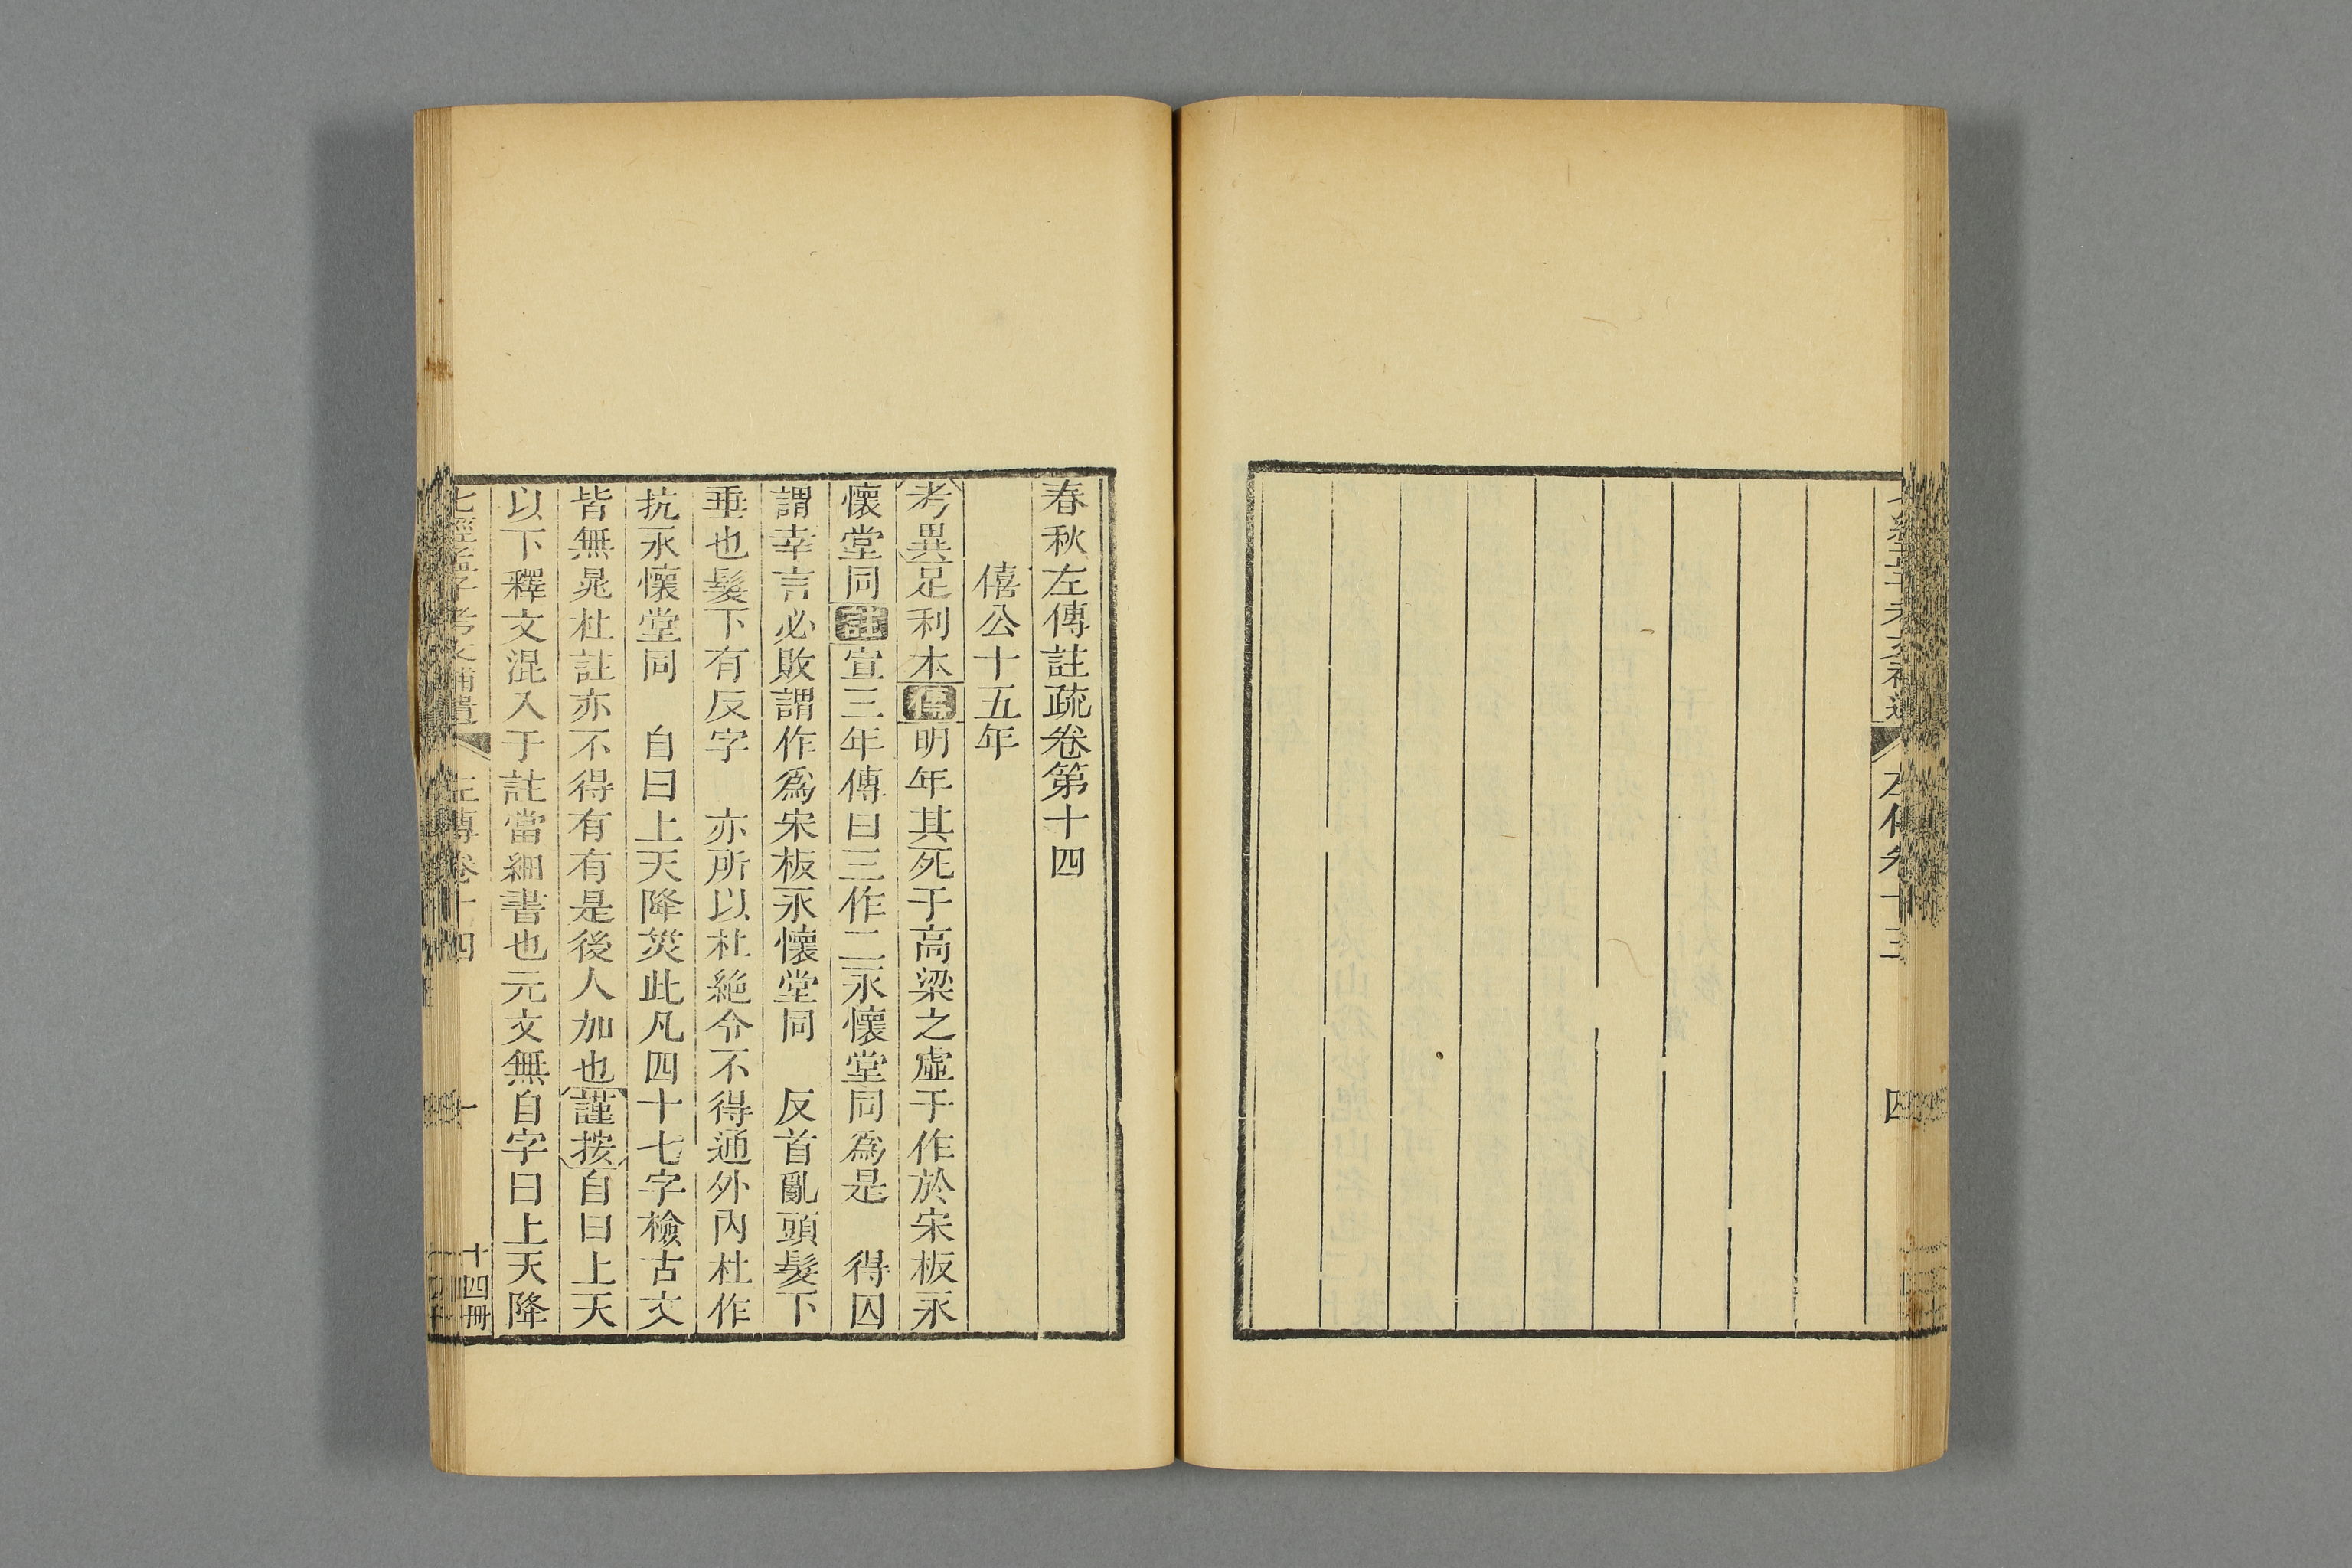 左傳卷十三
四
春秋左傳註疏卷第十四
僖公十五年
考異足利本傳明年其死于高梁之虛于作於宋板永
懷堂同註宣三年傳曰三作二永懷堂同為是　得囚
謂幸言必敗謂作為宋板永懷堂同　反首亂頭髮下
垂也髮下有反字　亦所以杜絕令不得通外內杜作
抗永懷堂同　自曰上天降災此凡四十七字檢古文
皆無晁杜註亦不得有有是後人加也謹按自曰上天
以下釋文混入于註當細書也元文無自字曰上天降
七經孟子考文補遺　左傳卷十四　一　十四冊